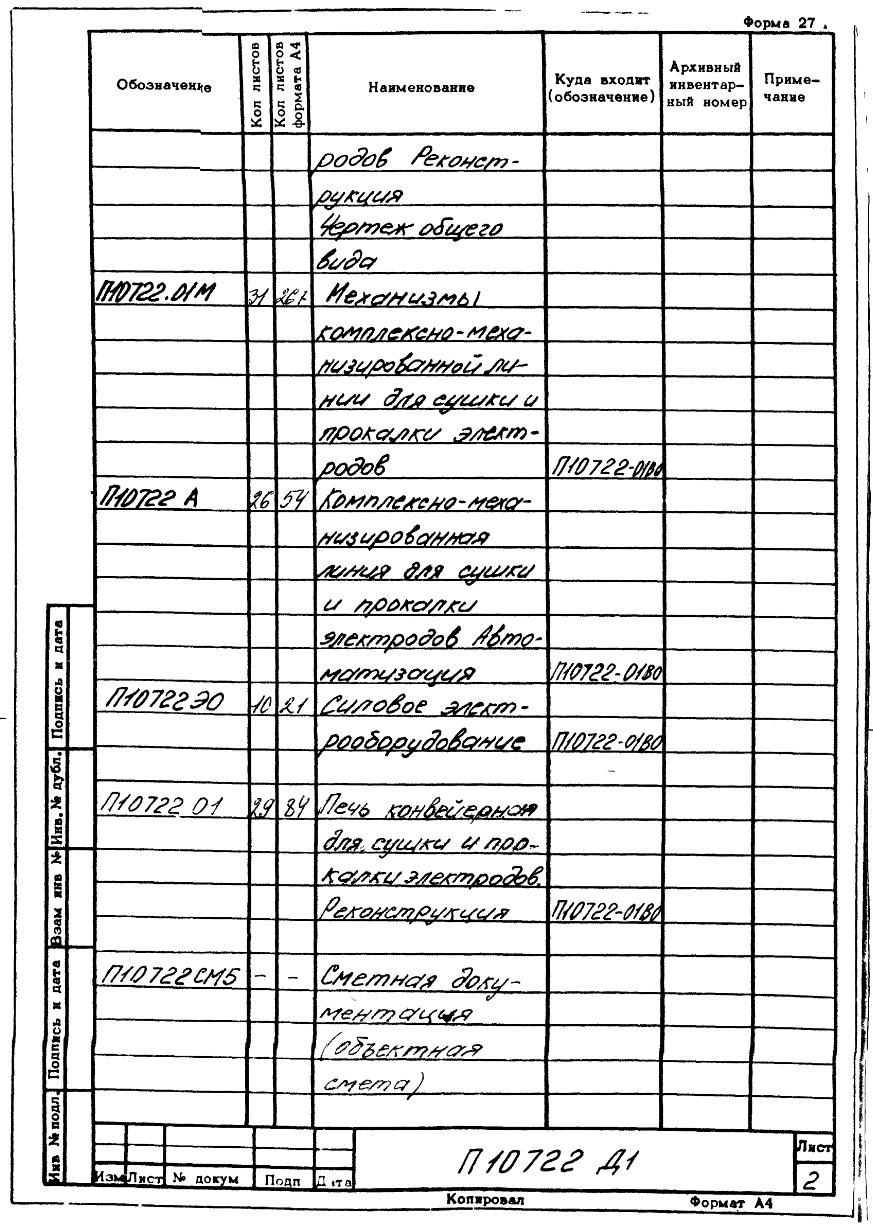 Форма 27
Обозначение
Кол листов
Кол листов формата А4
Наименование
Куда входит (обозначение)
Архивный инвентар-ный номер
Приме-чание
родов Реконст-
рукция
Чертеж общего
вида
П10722.01М 31 267 Механизмы
комплексно-меха-
низированной ли-
нии для сушки и
прокалки элект-
родов П10722-01В0
П10722 А 26 54 Комплексно-меха-
низированная
линия для сушки
и прокалки
электродов Авто-
матизация П10722-01В0
П10722ЭО 10 21 Силовое элект-
рооборудование П10722-01В0
П10722 01 29 84 Печь конвейерная
для сушки и про-
калки электродов.
Реконструкция П10722-01В0
П10722СМ5 – – Сметная доку-
ментация
(объектная
смета)
Подпись и дата
Инв. № дубл.
Взам инв №
Подпись и дата
Инв № подл.
Изм Лист № докум Подп Дата
П10722 Д1
Лист
2
Копировал
Формат А4